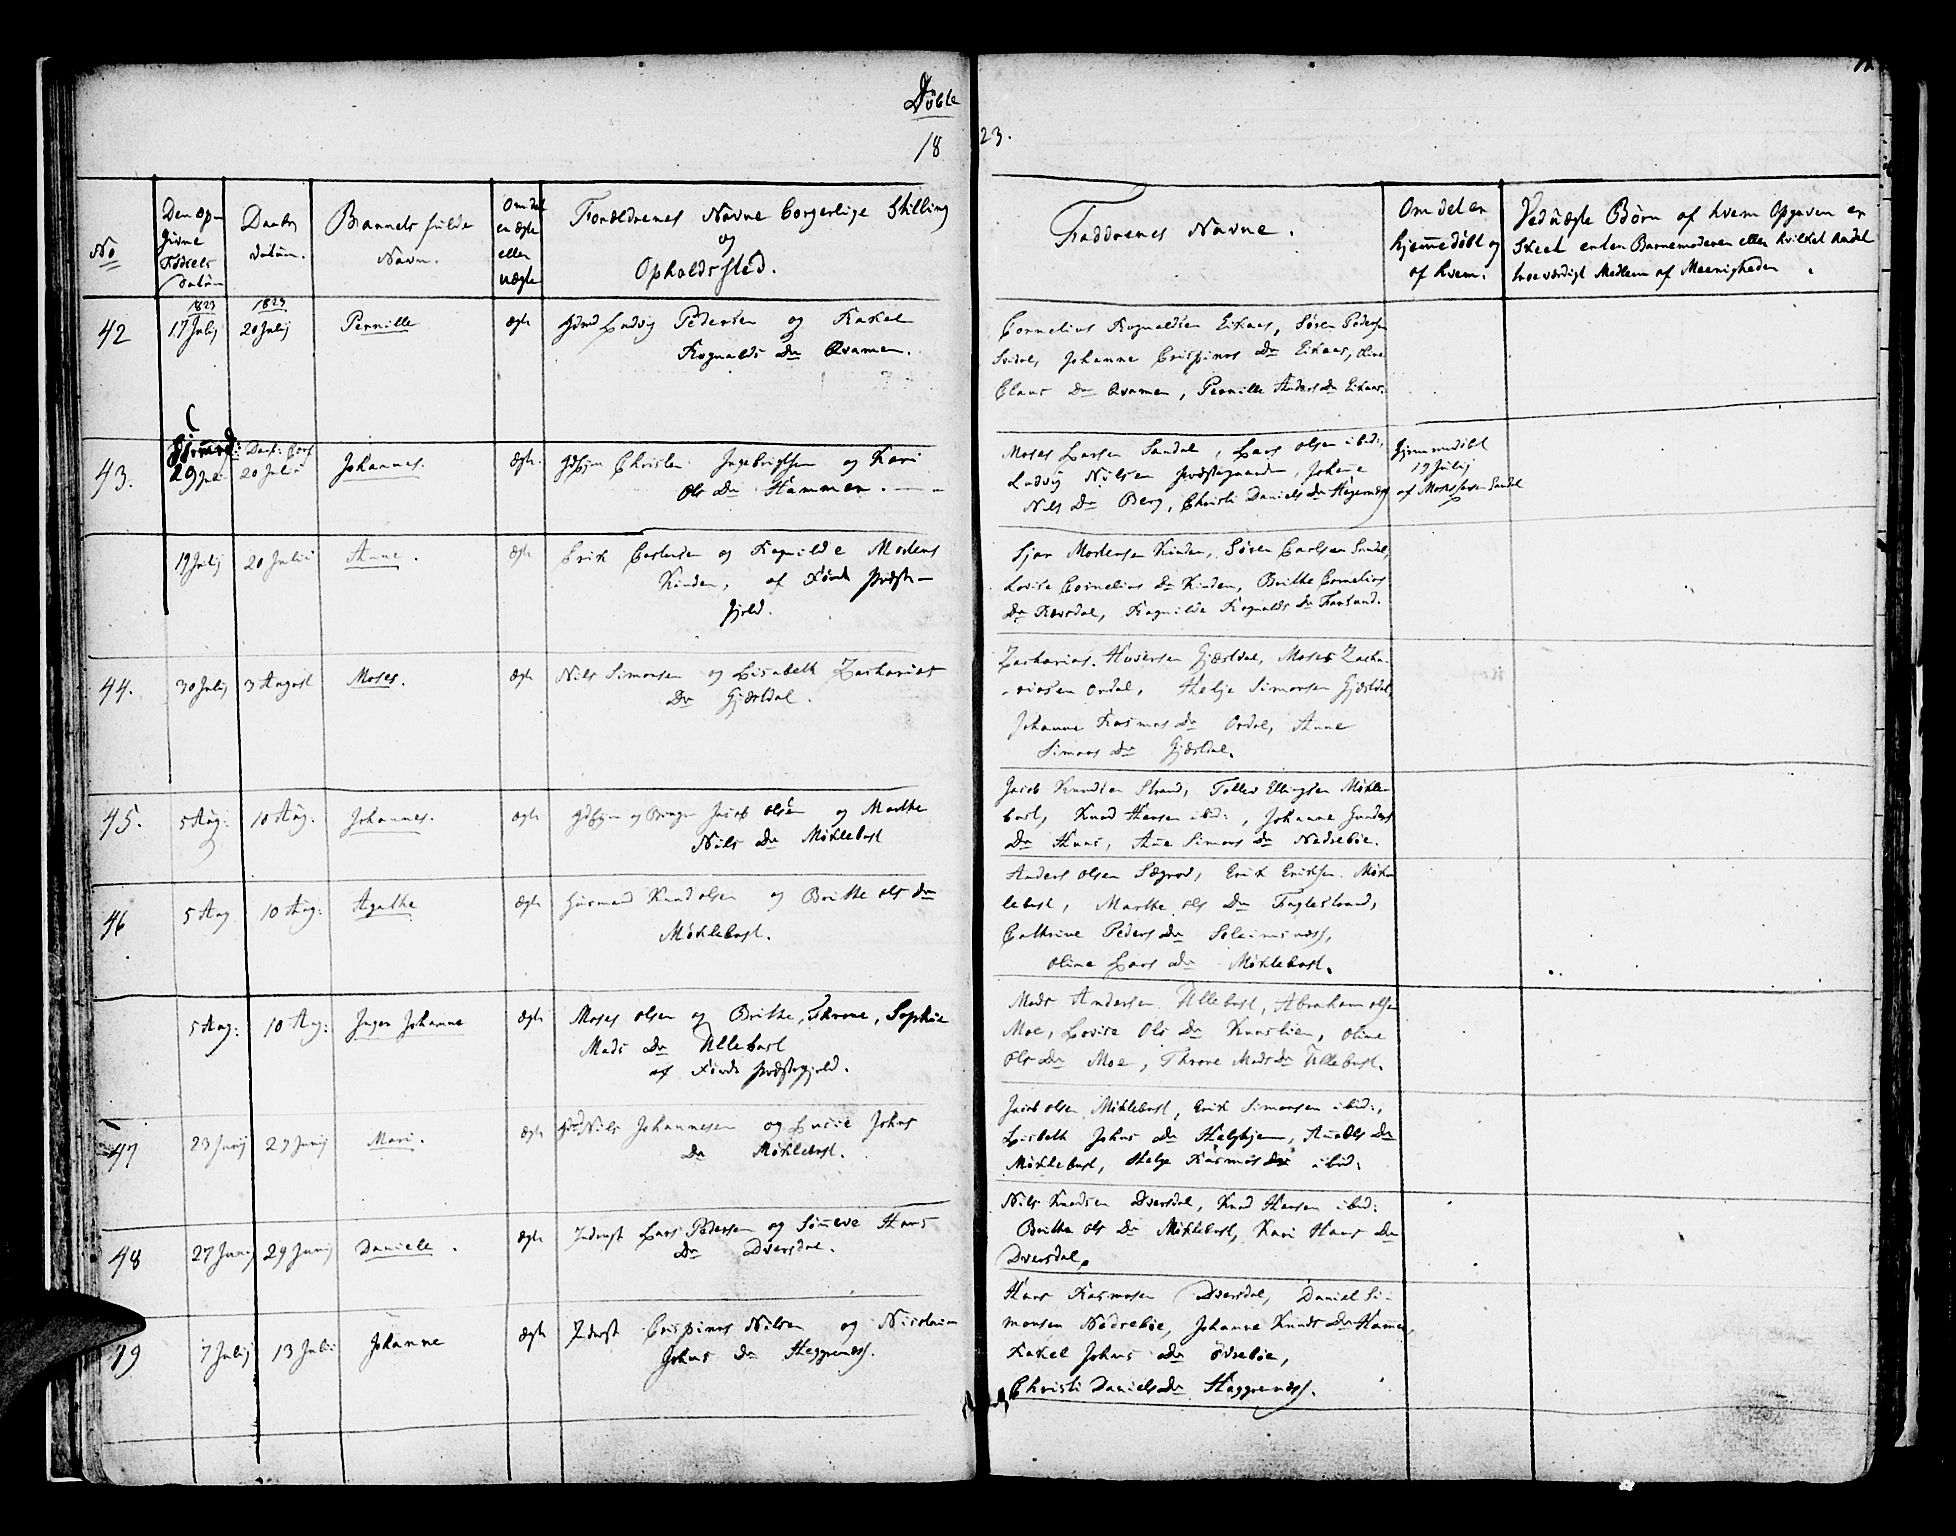 Döbte
1823.
No
Den op-
givne
Fødsels
Datum
Daabs
Datum.
Barnets fulde
Navn.
Om det
er ægte
eller
uægte
Forældrenes Navne borgerlige Stilling
og
Opholdssted.
Faddrenes Navne.
Om det er
hjemmedøbt og
af hvem.
Ved uægte Børn af hvem Opgaven er
Skeet enten Barnemoderen eller hvilket andet
troeværdigt Medlem af Meenigheden.
42
1823
17 Julij
1823
20 Julij
Pernille
ægte
Ludvig Pedersen og Rakel
Rognalds Dr Qvamen.
Cornelius Rognaldsen Eikaas, Søren Pedersen
Johanne Crispinus Dr Eikaas, Oline
Claus Dr Qvamen, Pernille Anders Dr Eikaas.
43.
29 Jul
20 Julii
Johannes.
ægte.
Christen Ingebrigtsen og Kari
Ols Dr Hammer.
Moses Larsen Sandal, Lars Olsen ibid:,
Ludvig Nilsen Præstegaarden, Johanne
Nils Dr Berg, Christi Daniels Dr Heggenæs
Hjemmedöbt
19 Julij
af Moses Larsen Sandal
19 Julij
20 Julii
Anne.
ægte
Erik Carlsen og Ragnilde Mortens
Kinden, af Förde Præste-
gjeld.
Mortensen Kinden, Søren Carlsen Sandal,
Lovise Cornelius Dr Kinden, Brithe Cornelius
Dr Ragnilde Rognalds Dr
44.
30 Julij
3 August
Moses.
ægte
Nils Simonsen og Lisabeth Zacharias
Dr Gjæsdal.
Zacharias Gjæsdal, Moses Zacha-
-riasen Ordal, Helje Simonsen Gjæsdal,
Johanne Rasmus Dr Ordal, Anne
Simons Dr Gjæsdal.
45.
5 Aug:
10 Aug:
Johannes.
ægte
og Bruger Jacob Olsen og Marthe
Nils Dr Møklebust
Jacob Knudsen Strand, Tollev Ellingsen Møkle-
bust, Knud Hansen ibid:, Johanne Gunders
Dr Huus, Anne Simons Dr Nedrebøe.
46
5 Aug
10 Aug:
Agathe
ægte
Huusmand Knud Olsen og Brithe Ols Dr
Møklebust.
Anders Olsen Sægrov, Erik Eriksen Møk-
lebust, Marthe Ols Dr Fuglestrand,
Cathrine Peders Dr
Oline Lars Dr Møklebust.
5 Aug:
10 Aug:
Inger Johanne
ægte
Moses Olsen og Brithe, Throne, Sophie
Mads Dr Ullebust
af Förde Præstegjeld.
Mads Andersen Ullebust, Abraham Olsen
Moe, Lovise Ols Dr Oline
Ols Dr Moe, Throne Mads Dr Ullebust.
47
23 Junij
29 Junij
Mari.
ægte
Nils Johannesen og Lucie Johns
Dr Møklebust.
Jacob Olsen Møklebust, Erik Simonsen ibid:,
Lisbeth Johns Dr Helgheim, Anne Ols Dr
Møklebust, Helge Rasmus Dr ibid:
48
27 Junij
29 Junij
Daniele.
ægte
Inderst Lars Pedersen og Synneve Hans
Dr Dversdal.
Nils Knudsen Dversdal, Knud Hansen ibid:
Brithe Ols Dr Møklebust, Kari Hans Dr
Dversdal.
49
7 Julij
13 Julii
Johanne
ægte
Inderst Crispinus Nilsen og Nicolina
Johns Dr Heggenæs.
Hans Rasmusen Dversdal, Daniel Si-
monsen Nedrebøe, Johanne Knuds Dr Hammer,
Rakel Johns Dr Øvrebøe,
Christi Daniels Dr Heggenæs.